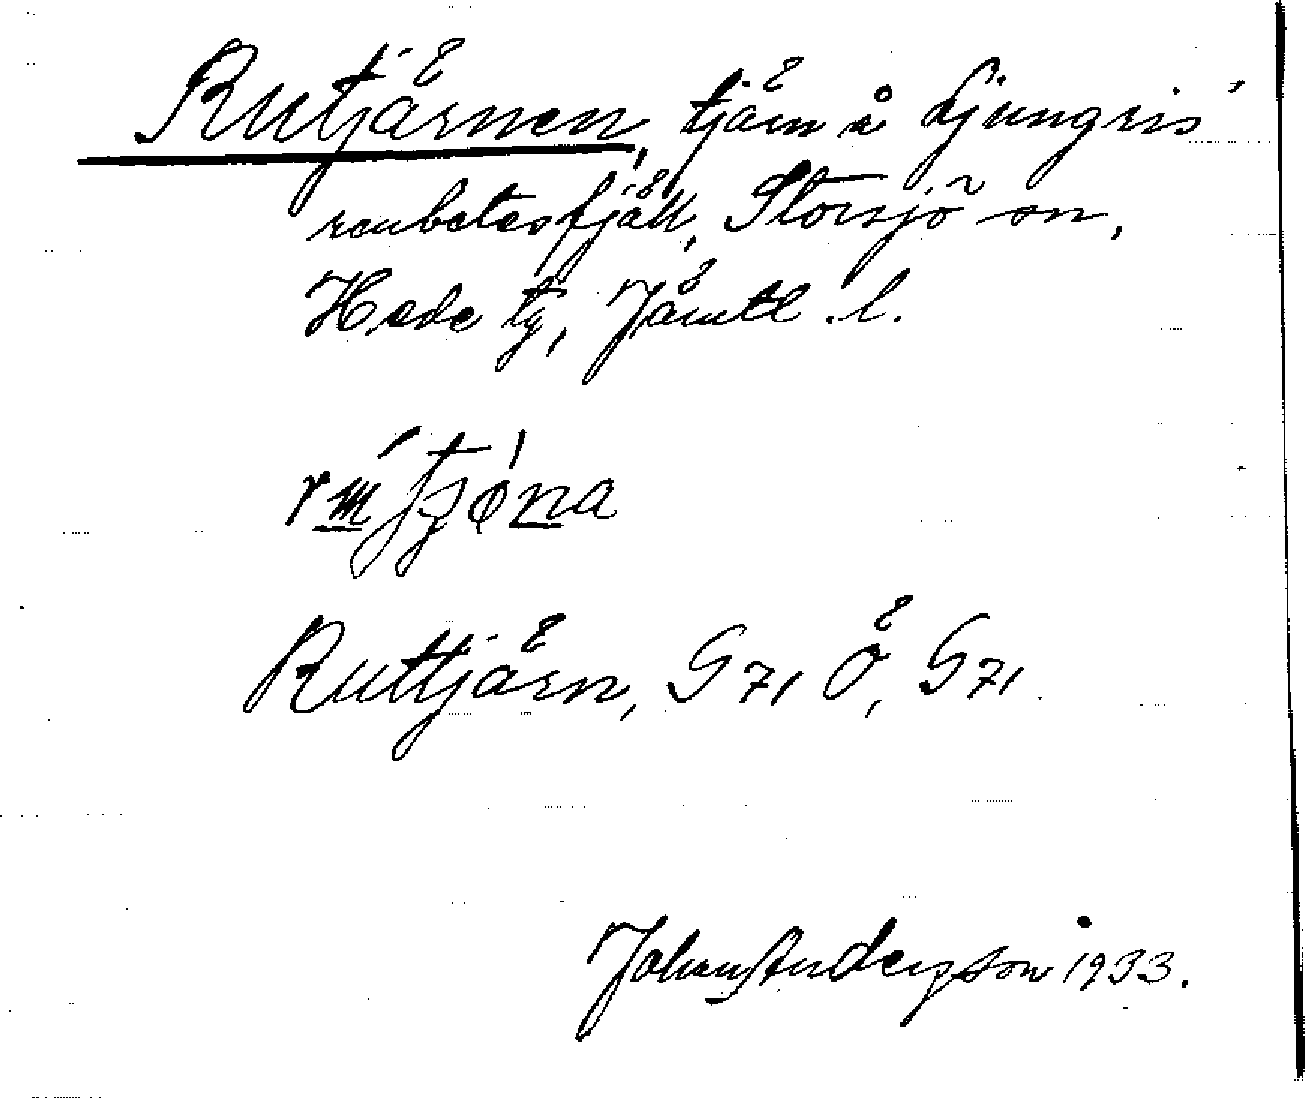 Rutjärnen, tjärn å Ljungris
renbetesfjäll, Storsjö sn,
Hede tg, Jämtl. l.
Ruttjärn, G 71 Ö, G 71
Johan Anderson 1933.